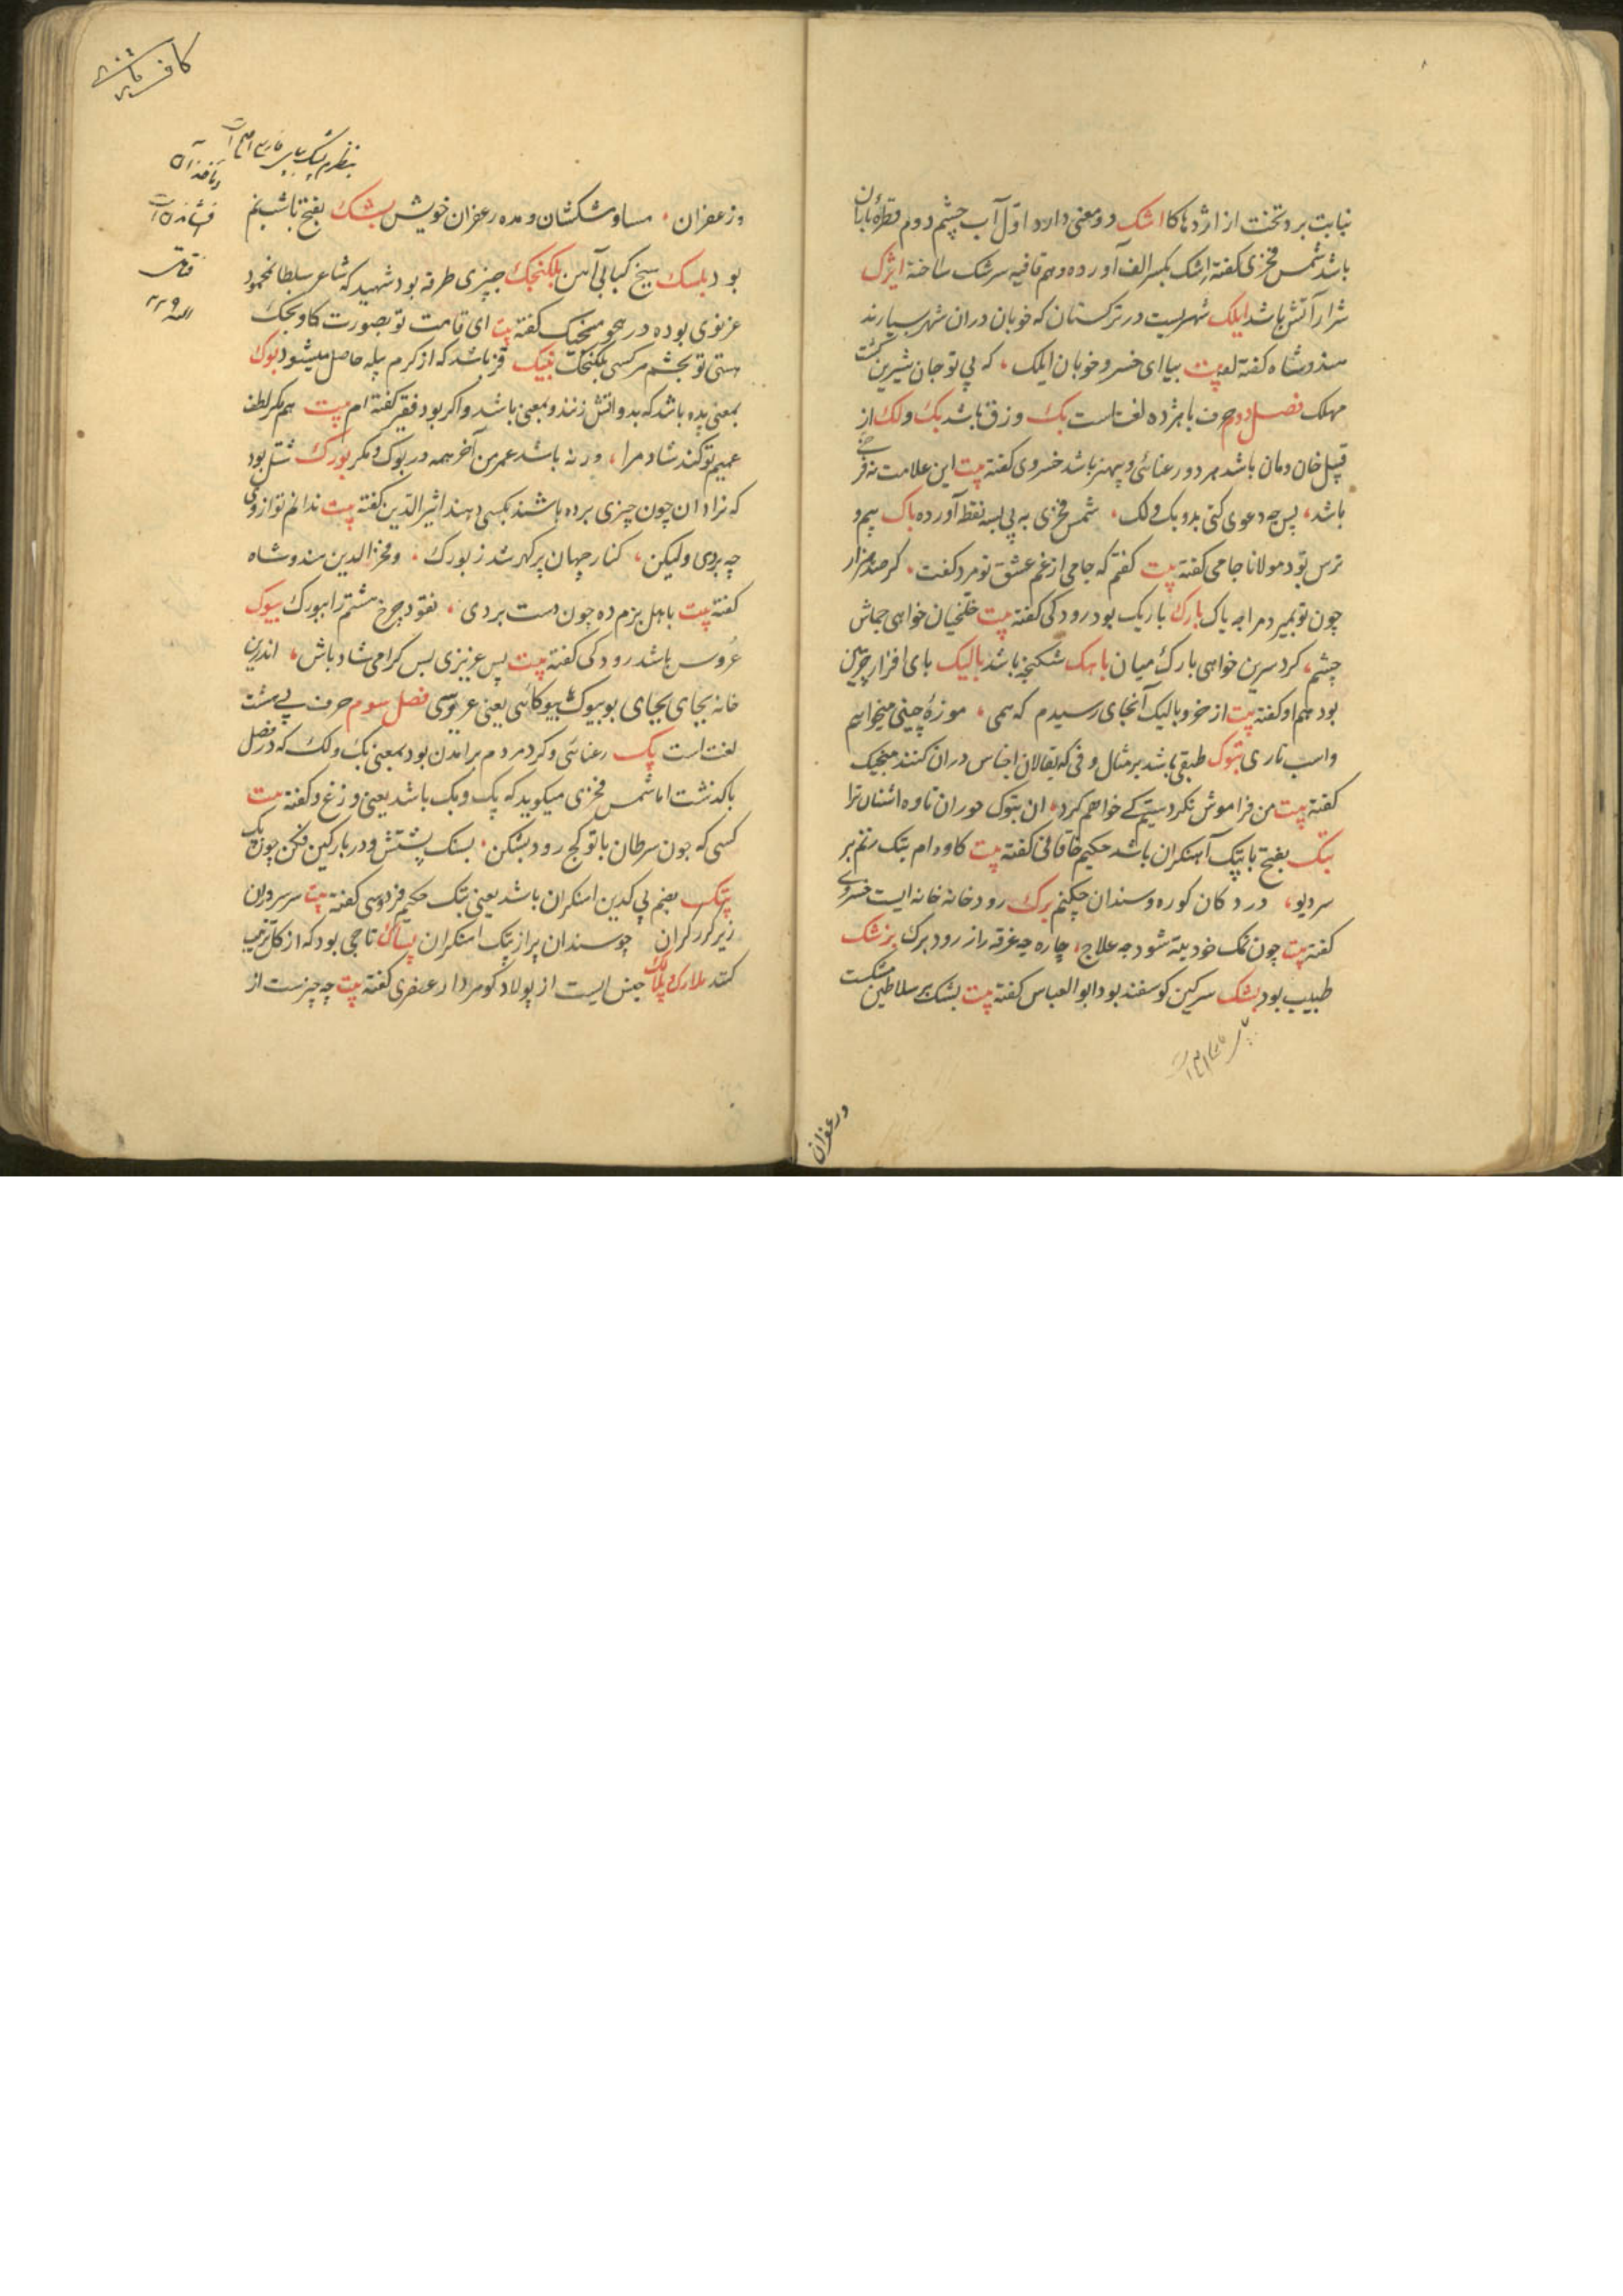 نیابت برد تخت از اژدها کا اشک دو معنی دارد اول آب چشم دوم قطرهٔ باران
باشد شمس فخری گفته اشک بکسر الف آورده و هم قافیه سرشک ساخته ایژک
شرار آتش باشد ایلک شهریست در ترکستان که خوبان دران شهر بسیارند
هندوشاه گفته بیت بیا ای خسرو خوبان ایلک که بی تو جان شیرین گشت
مهلک فصل دوم حرف با هژده لغتاست بک وزق باشد بک و لک از
قبیل خان و مان باشد هر دو رعنائی و بیهنر باشد خسروی گفته بیت این علامت نه
باشد پس چه دعوی کنی بدو بک و لک شمس فخری به پی بسه نقطه آورده باک بیم و
ترس بود مولانا جامی گفته بیت گفتم که جامی از غم عشق تو مرد گفت کر صد هزار
چون تو بمیرد مرا چه باک بارک باریک بود رودکی گفته بیت خلخیان خواهی جماش
چشم کرد سرین خواهی بارک میان باهک شکنجه باشد بالیک پای افزار چرمین
بود هم او گفته بیت از خر و بالیک آنجای رسیدم که همی موزهٔ چینی میخواهم
واسب تازی بتوک طبقی باشد بر مثال دفی که بقالان اجناس دران کنند منجیک
گفته بیت من فراموش نکردستم کے خواهم کرد ان بتوک جوران تاوه اشنان ترا
بتک بفتح با پتک آهنکران باشد حکیم خاقانی گفته بیت کاوه ام بتک زنم بر
سر دیو در دکان کوره و سندان چکنم برک رودخانه خانه ایست خسروی
گفته بیت چون نمک خود تبه شود چه علاج چاره چه غرقه را ز رود برک بزشک
طبیب بود بشک سرکین کوسفند بود ابو العباس گفته بیت بشک بر سلاطین مشکست
وزعفران
کافر
بنظر پشک ببای فارسی
وزعفران مساو مشکشان و مده زعفران خویش بشک بفتح با شبنم
بود بلسک سیخ کبابی آهن بلکنجک چیزی طرفه بود شهید که شاعر سلطان محمود
غزنوی بوده در هجو منجیک گفته بیت ای قامت تو بصورت کاونجک
هستی تو بچشم هر کسی بلکنجک بنیک قز باشد که از کرم پیله حاصل میشود بوک
بمعنی پده باشد که بدو آتش زنند و بمعنی باشد و اکر بود فقیر گفته ام بیت هم مکر لطف
عمیم تو کند شاد مرا ورنه باشد عمر من آخر همه در بوک و مکر بورک شتل بود
که نرادان چون چیزی برده باشند بکسی دهند اثیر الدین گفته بیت ندانم تو از وی
چه بردی ولیکن کنار جهان پر کهر شد ز بورک و فخر الدین هندوشاه
گفته بیت باهل بزم ده چون دست بردی نقود چرخ هشتم را ببورک بیوک
عروس باشد رودکی گفته بیت بس عزیزی بس کرامی شاد باش اندرین
خانه بجای بیوک بیوکانی یعنی عروسی فصل سوم حرف پے هشت
لغت است پک رعنائی و کرد مردم برامدن بود بمعنی بک و لک که در فصل
با کذشت اما شمس فخری میکوید که پک و بک باشد یعنی وزغ و گفته بیت
کسی که چون سرطان با تو کج رود بشکن بسنک پشتش و در بارکین فکن چون بک
پتک بضم پی کدین اهنکران باشد یعنی بتک حکیم فردوسی گفته بیت سر سروران
زیر کرز کران چو سندان بر از پتک آهنکران پساک تاجی بود که از کل ترتیب
کنند بلارک و پلالک جنس ایست از پولاد کوهردار عنصری گفته بیت چه چیزست از